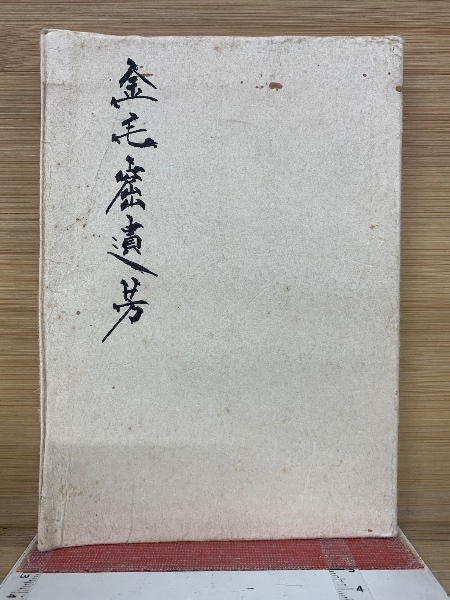 金毛窟遺芳
3
4
5
4